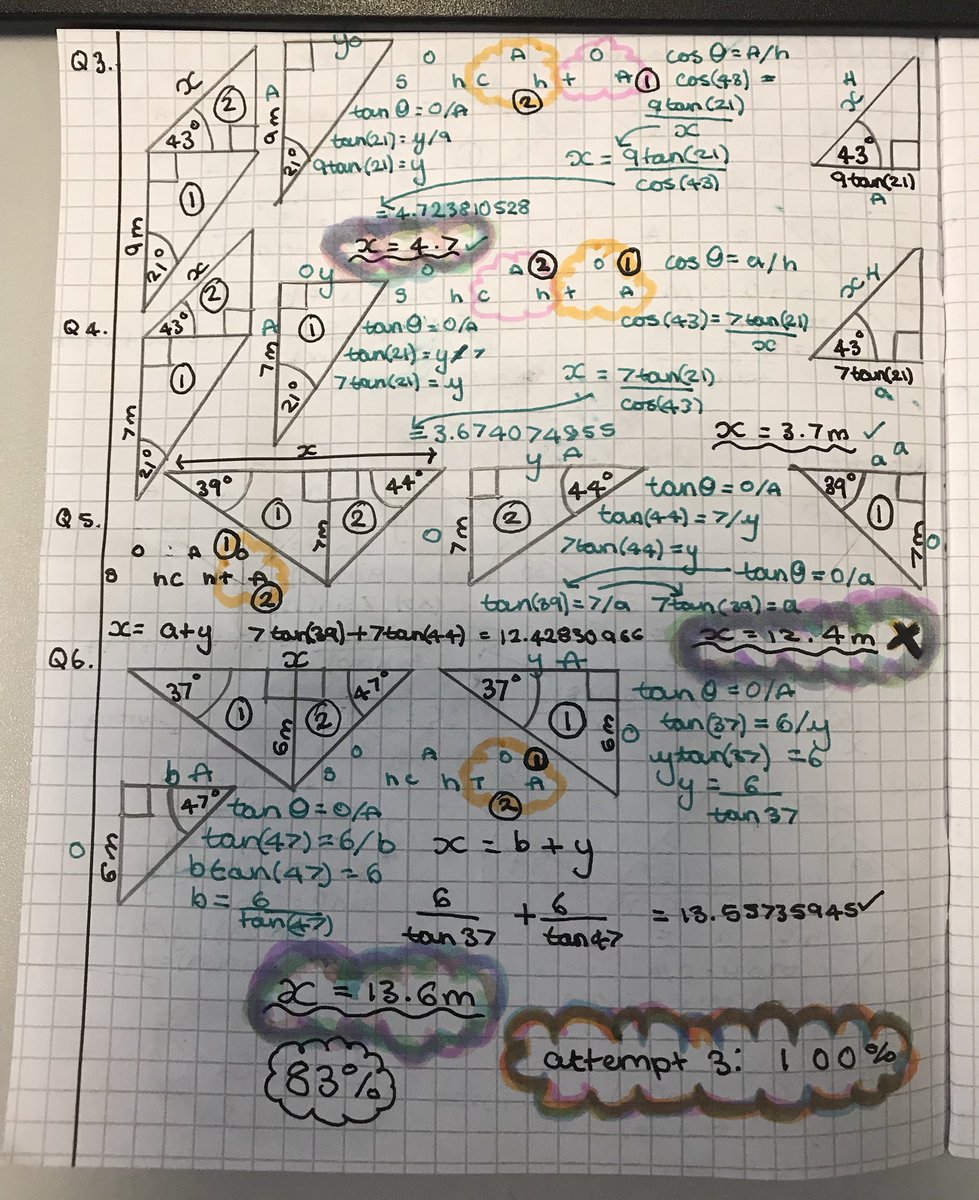 Q3.
x
②
43°
①
9m
21°
yo
A
9m
21°
S O h C A h t O A ①
②
tanθ = O/A
tan(21) = y/9
9tan(21) = y
cosθ = A/h
cos(43) =
9tan(21)
x
x = 9tan(21)
cos(43)
= 4.723810528
x = 4.7 ✓
H
x
43°
9tan(21)
A
Q4.
x
②
43°
①
7m
21°
O y
A
7m
①
21°
S O h C A ② h t O ① A
tanθ = O/A
tan(21) = y/7
7tan(21) = y
cosθ = a/h
cos(43) = 7tan(21)
x
x = 7tan(21)
cos(43)
= 3.674074955
x = 3.7m ✓
x H
43°
7tan(21)
a
Q5.
x
39° 44°
① ②
7m
y A
44°
O 7m ②
tanθ = O/A
tan(44) = 7/y
7tan(44) = y
a a
39°
①
7m O
O A ① O
S h C h t A
②
tanθ = O/a
tan(39) = 7/a 7tan(39) = a
x = a+y 7tan(39)+7tan(44) = 12.42830966
x = 12.4m ✗
Q6.
x
37° 47°
① ②
6m
y A
37°
① 6m O
tanθ = O/A
tan(37) = 6/y
ytan(37) = 6
y = 6
tan 37
S O h C A h T O ① A
②
b A
47°
O 6m
tanθ = O/A
tan(47) = 6/b
btan(47) = 6
b = 6
tan(47)
x = b + y
6 + 6 = 13.55735945 ✓
tan 37 tan 47
x = 13.6m
83%
attempt 3: 100%